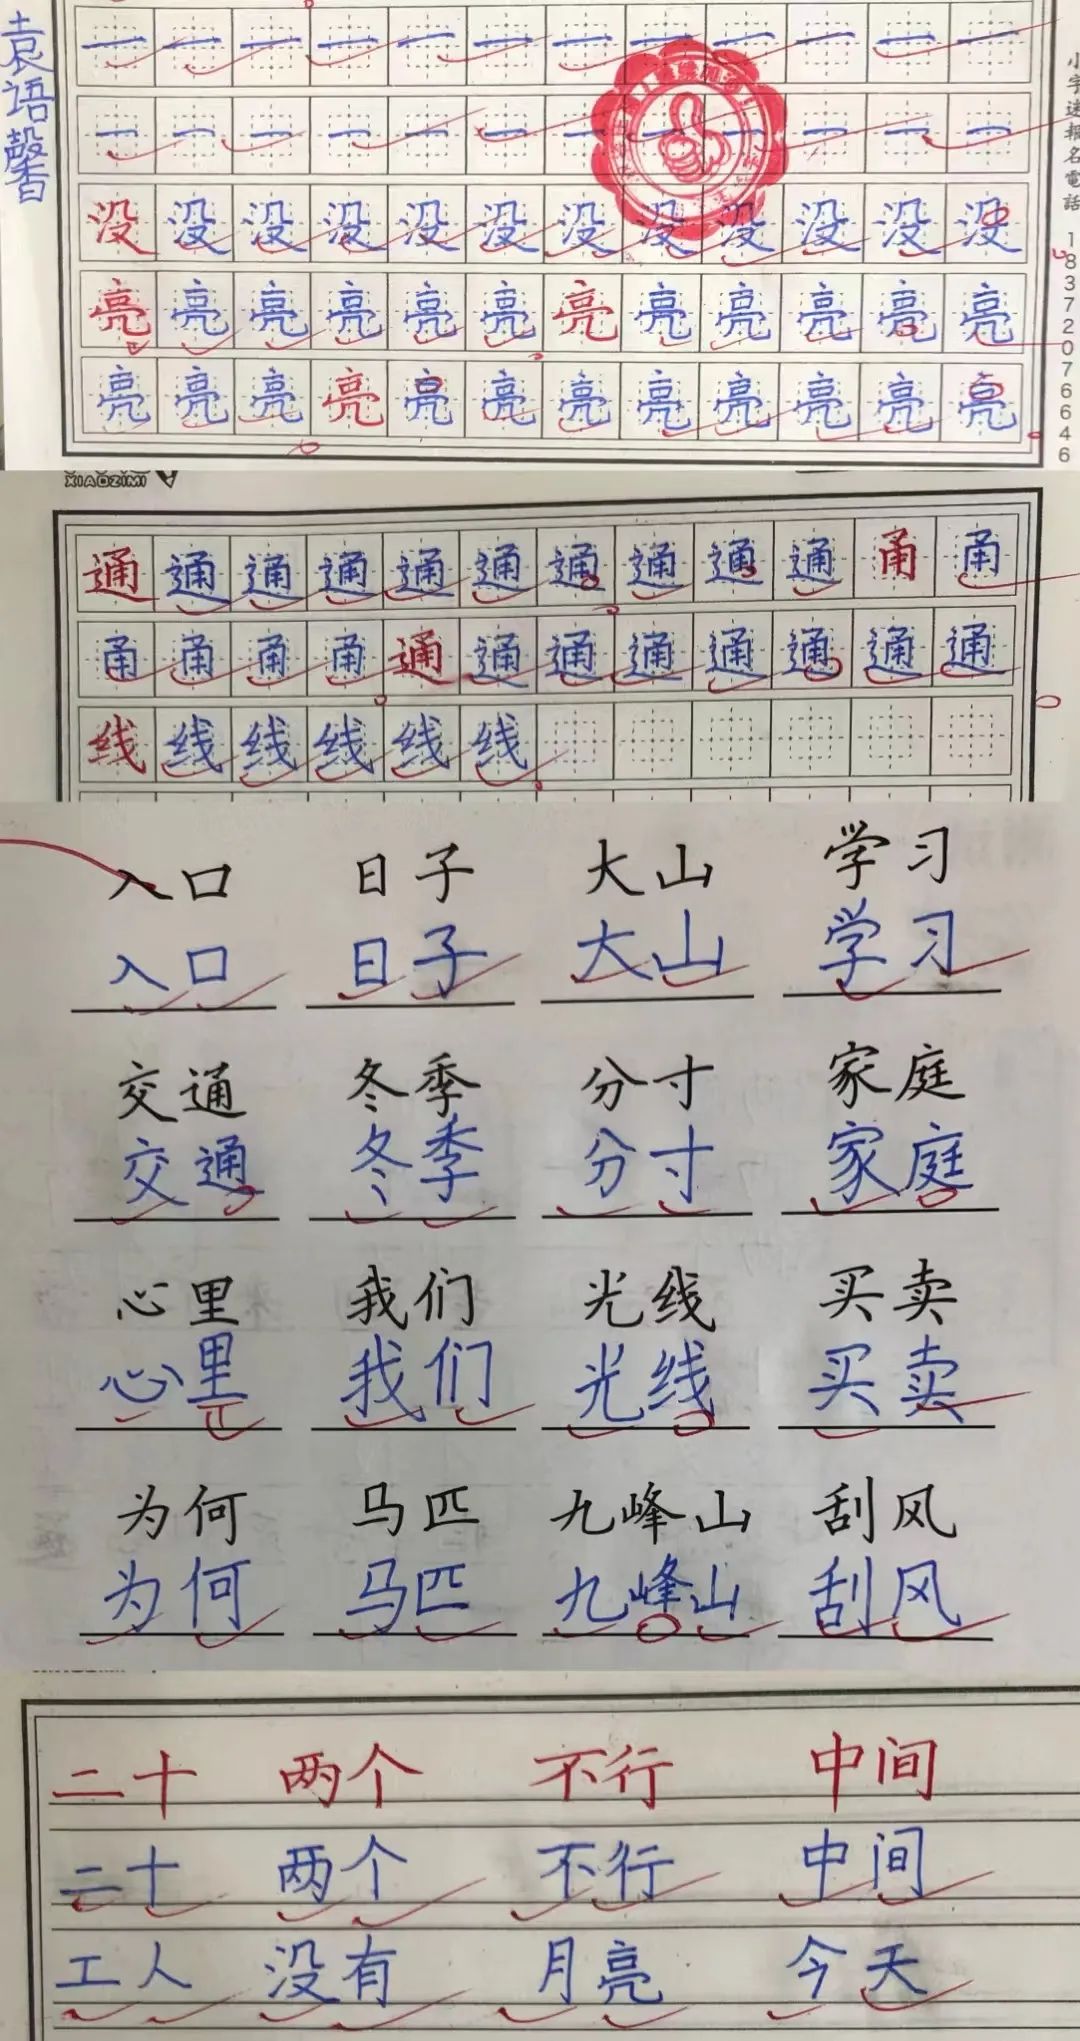 袁语馨
一 一 一 一 一 一 一 一 一 一 一 一
一 一 一 一 一 一 一 一 一 一 一 一
没 没 没 没 没 没 没 没 没 没 没 没
亮 亮 亮 亮 亮 亮 亮 亮 亮 亮 亮 亮
亮 亮 亮 亮 亮 亮 亮 亮 亮 亮 亮 亮
小字迷报名電話 18372076646
XIAOZIMI
通 通 通 通 通 通 通 通 通 通 甬 甬
甬 甬 甬 甬 通 通 通 通 通 通 通 通
线 线 线 线 线 线
入口 日子 大山 学习
入口 日子 大山 学习
交通 冬季 分寸 家庭
交通 冬季 分寸 家庭
心里 我们 光线 买卖
心里 我们 光线 买卖
为何 马匹 九峰山 刮风
为何 马匹 九峰山 刮风
二十 两个 不行 中间
二十 两个 不行 中间
工人 没有 月亮 今天